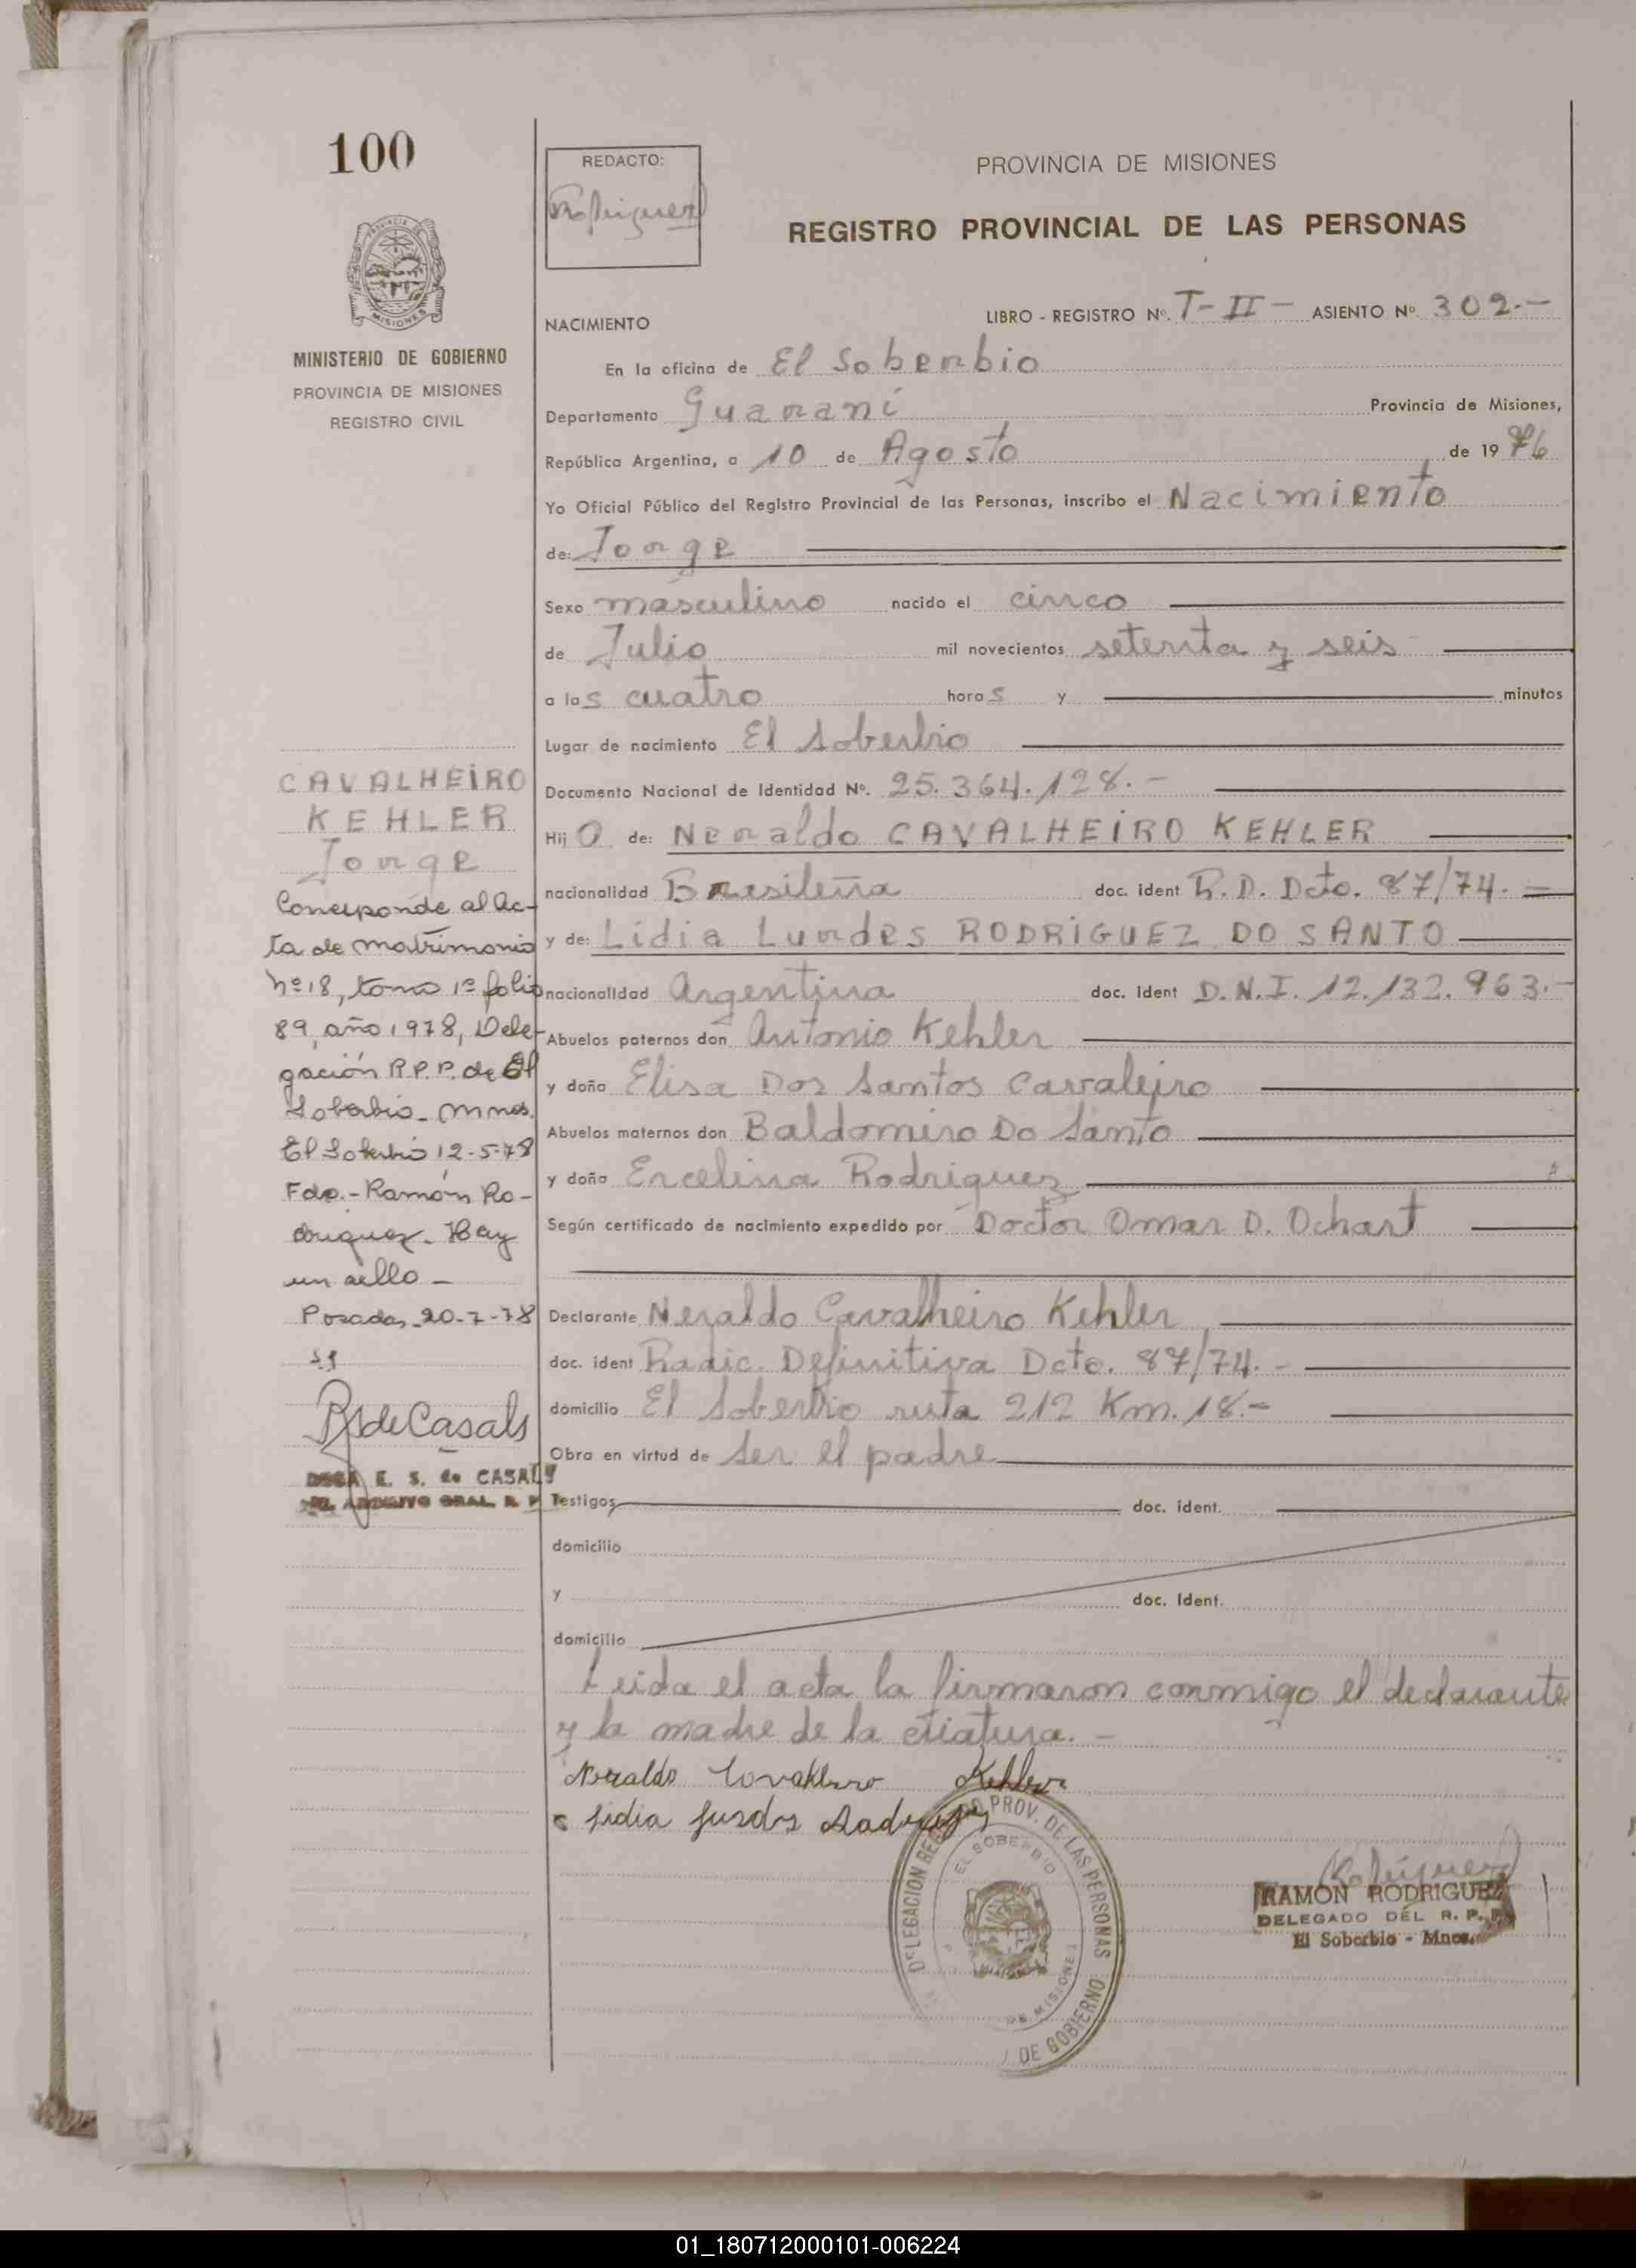 100
REDACTO:
Rodriguez
PROVINCIA DE MISIONES
REGISTRO PROVINCIAL DE LAS PERSONAS
MISIONES
MINISTERIO DE GOBIERNO
PROVINCIA DE MISIONES
REGISTRO CIVIL
NACIMIENTO
LIBRO - REGISTRO Nº. T-II- ASIENTO Nº. 302.-
En la oficina de El Soberbio
Departamento Guarani Provincia de Misiones,
República Argentina, a 10 de Agosto de 1976
Yo Oficial Público del Registro Provincial de las Personas, inscribo el Nacimiento
de: Jorge
Sexo masculino nacido el cinco
de Julio mil novecientos setenta y seis
a las cuatro horas y minutos
Lugar de nacimiento El Soberbio
Documento Nacional de Identidad Nº. 25.364.128.-
Hijo de: Neraldo CAVALHEIRO KEHLER
nacionalidad Brasileña doc. ident R.D. Dcto. 87/74.-
y de: Lidia Lurdes RODRIGUEZ DO SANTO
nacionalidad Argentina doc. ident D.N.I. 12.132.963.-
Abuelos paternos don Antonio Kehler
y doña Elisa Dos Santos Cavaleiro
Abuelos maternos don Baldomiro Do Santo
y doña Ercelina Rodriguez
Según certificado de nacimiento expedido por Doctor Omar D. Ochart
Declarante Neraldo Cavalheiro Kehler
doc. ident Radic. Definitiva Dcto. 87/74.-
domicilio El Soberbio ruta 212 Km. 18.-
Obra en virtud de Ser el padre
Testigos doc. ident.
domicilio
y doc. Ident.
domicilio
Leida el acta la firmaron conmigo el declarante
y la madre de la criatura.-
Neraldo Covalhero Kehler
Lidia Lurdes Rodriguez
CAVALHEIRO
KEHLER
Jorge
Corresponde al Ac-
ta de matrimonio
Nº 18, tomo 1º folio
89, año 1978, Dele-
gación R.P.P. de El
Soberbio - Mnes.
El Soberbio 12-5-78
Fdo.- Ramón Ro-
driguez - Hay
un sello -
Posadas, 20-7-78
RS de Casals
E. S. de CASALS
ARCHIVO GRAL. R. P.
DELEGACION REG. PROV. DE LAS PERSONAS
EL SOBERBIO
DE MISIONES
DE GOBIERNO
Rodriguez
RAMON RODRIGUEZ
DELEGADO DEL R. P. P.
El Soberbio - Mnes.
01_180712000101-006224